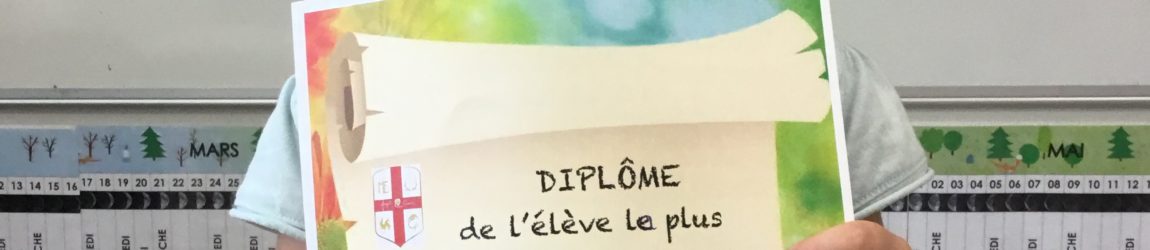 MARS
MAI
2 13 14 15 16
17 18 19 20 21 22 23 24 25
02 03 04 05 06 07 08 09 10 11 12 1
DIPLÔME
de l'élève le plus
ME